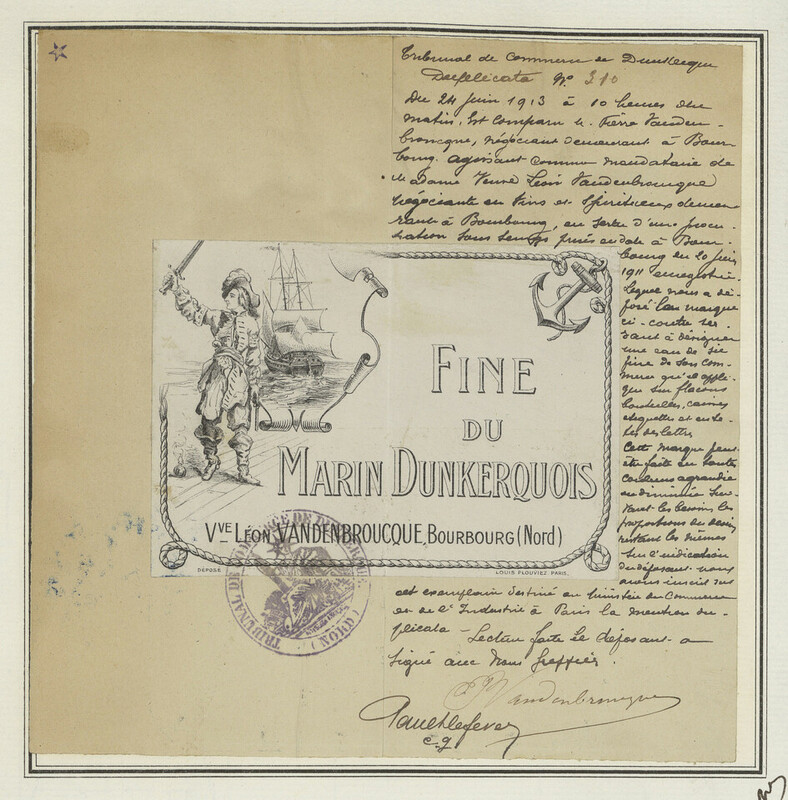 Tribunal de Commerce de Dunkerque
Duplicata N° 310
Du 24 Juin 1913 à 10 heures du
matin, Est Comparu M. Pierre Vanden-
broucque, négociant demeurant à Bour-
bourg, agissant comme mandataire de
Madame Veuve Léon Vandenbroucque
négociante en Vins et Spiritueux demeu
rant à Bourbourg, en vertu d'une procu-
ration sous seings privés en date à Bour-
bourg du 20 Juin
1911 enregistrée
Lequel nous a dé-
posé la marque
ci-contre ser-
vant à désigner
une eau de vie
fine de son com-
merce qu'il appli-
que sur flacons
bouteilles, caisses
étiquettes et en tê-
tes de lettres
Cette marque peut
être faite en toutes
couleurs agrandie
ou diminuée Sui-
vant les besoins les
proportions du dessin
restant les mêmes
Sur l'indication
du déposant nous
avons inscrit sur
cet exemplaire destiné au Ministère du Commerce
et de l'Industrie à Paris la mention du-
plicata - Lecture faite le déposant a
signé avec Nous greffier.
FINE
DU
MARIN DUNKERQUOIS
VVE LÉON VANDENBROUCQUE, BOURBOURG (Nord)
DÉPOSÉ
LOUIS PLOUVIEZ. PARIS.
TRIBUNAL DE COMMERCE DE DUNKERQUE (NORD)
PVandenbroucque
c. g